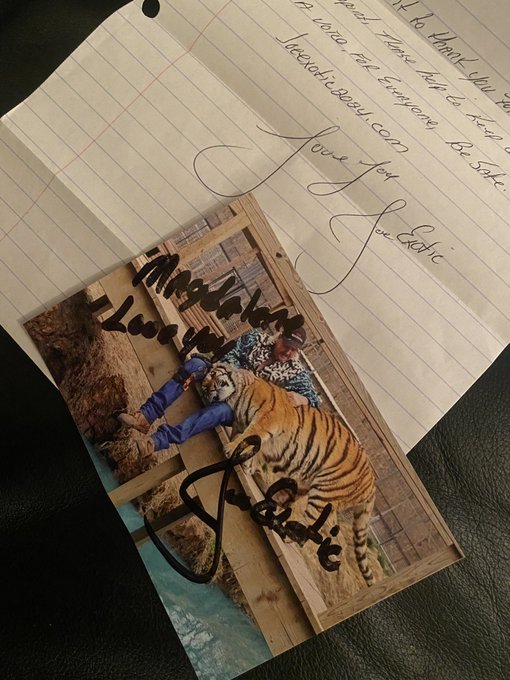 it to thank you
Please help to keep
A voice for Everyone, Be Safe.
joeexotic2024.com
Love you
Joe Exotic
Magdalane
Love you
Joe Exotic